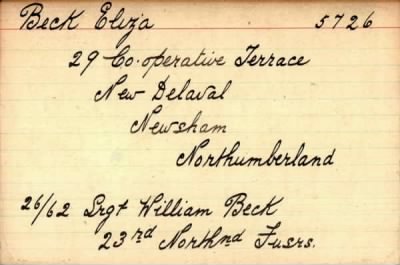 Beck Eliza 5726
29 Co-operative Terrace
New Delaval
Newsham
Northumberland
26/62 Srgt William Beck
23rd Northnd Fusrs.